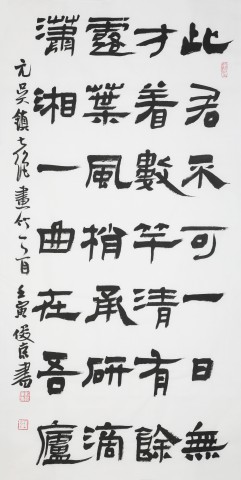 此君不可一日無
才着數竿清有餘
露葉風梢承研滴
瀟湘一曲在吾廬
元吳鎮七絕畫竹一首 壬寅 俊臣書